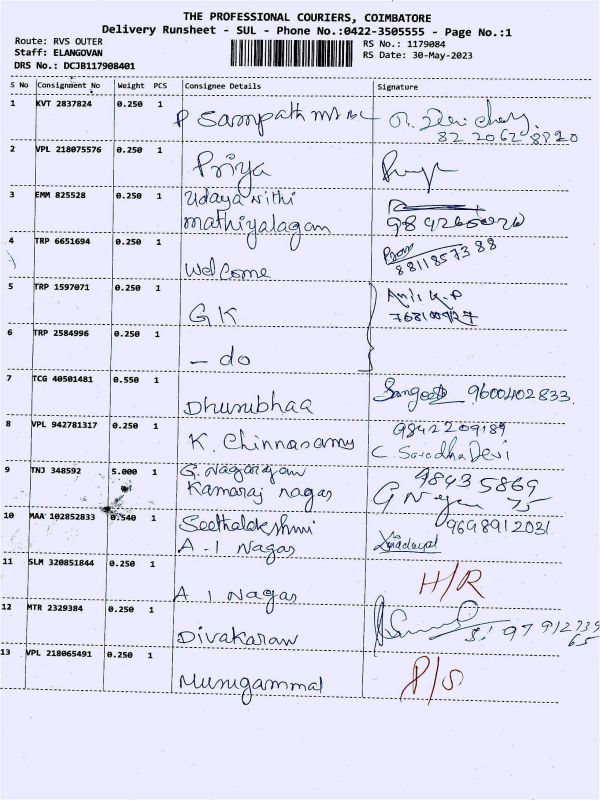 THE PROFESSIONAL COURIERS, COIMBATORE
Delivery Runsheet - SUL - Phone No.:0422-3505555 - Page No.:1
Route: RVS OUTER RS No.: 1179084
Staff: ELANGOVAN RS Date: 30-May-2023
DRS No.: DCJB117908401
S No Consignment No Weight PCS Consignee Details Signature
1 KVT 2837824 0.250 1 P Sampath
82 2062 8820
2 VPL 218075576 0.250 1 Priya
3 EMM 825528 0.250 1 Udaya Nithi
Mathiyalagan
4 TRP 6651694 0.250 1 Welcome 8811857388
5 TRP 1597071 0.250 1 GK Anil K.P
6 TRP 2584996 0.250 1 - do
7 TCG 40501481 0.550 1 Dhurubhaa Sangeeth 9600402833
8 VPL 942781317 0.250 1 K. Chinnasamy 9842209189
C. Sarodha Devi
9 TNJ 348592 5.000 1 G. Nagarajan 98435869
Kamaraj nagar 75
10 MAA 102852833 0.540 1 Seethalakshmi 9698912031
A-1 Nagar
11 SLM 320851844 0.250 1 A 1 Nagar H/R
12 MTR 2329384 0.250 1 Divakaran
65
13 VPL 218065491 0.250 1 Murugammal P/S